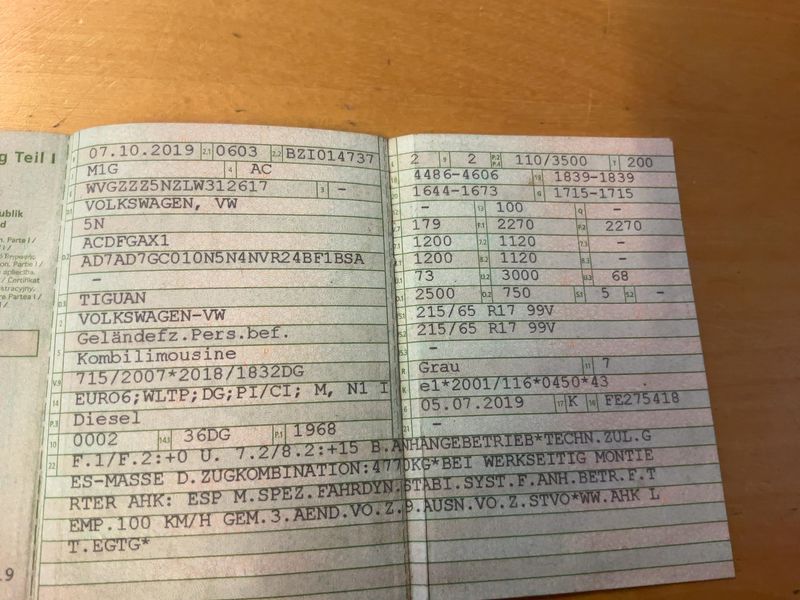 g Teil I
07.10.2019 2.1 0603 2.2 BZI014737
M1G 4 AC
WVGZZZ5NZLW312617 3 -
VOLKSWAGEN, VW
5N
ACDFGAX1
AD7AD7GC010N5N4NVR24BF1BSA
-
TIGUAN
VOLKSWAGEN-VW
Geländefz.Pers.bef.
Kombilimousine
715/2007*2018/1832DG
EURO6;WLTP;DG;PI/CI; M, N1 I
Diesel
0002 14.1 36DG P.1 1968
2 9 2 P.2 P.4 110/3500 T 200
4486-4606 19 1839-1839
1644-1673 G 1715-1715
- 13 100 Q -
179 F.1 2270 F.2 2270
1200 7.2 1120 7.3 -
1200 8.2 1120 8.3 -
73 U.2 3000 U.3 68
2500 O.2 750 S.1 5 S.2 -
215/65 R17 99V
215/65 R17 99V
-
Grau 11 7
e1*2001/116*0450*43
05.07.2019 17 K 16 FE275418
-
22 F.1/F.2:+0 U. 7.2/8.2:+15 B.ANHÄNGEBETRIEB*TECHN.ZUL.G
ES-MASSE D.ZUGKOMBINATION:4770KG*BEI WERKSEITIG MONTIE
RTER AHK: ESP M.SPEZ.FAHRDYN.STABI.SYST.F.ANH.BETR.F.T
EMP.100 KM/H GEM.3.AEND.VO.Z.9.AUSN.VO.Z.STVO*WW.AHK L
T.EGTG*